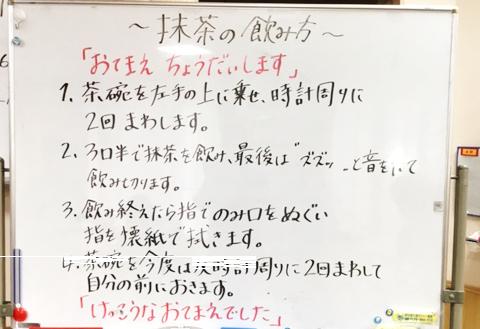 ～抹茶の飲み方～
「おてまえ ちょうだいします」
1. 茶碗を左手の上に乗せ、時計周りに
2回 まわします。
2. 3口半で抹茶を飲み、最後は"ズズッ"と音をたて
飲み切ります。
3. 飲み終えたら指でのみ口をぬぐい
指を懐紙で拭きます。
4. 茶碗を今度は反時計周りに2回まわして
自分の前におきます。
「けっこうなおてまえでした」